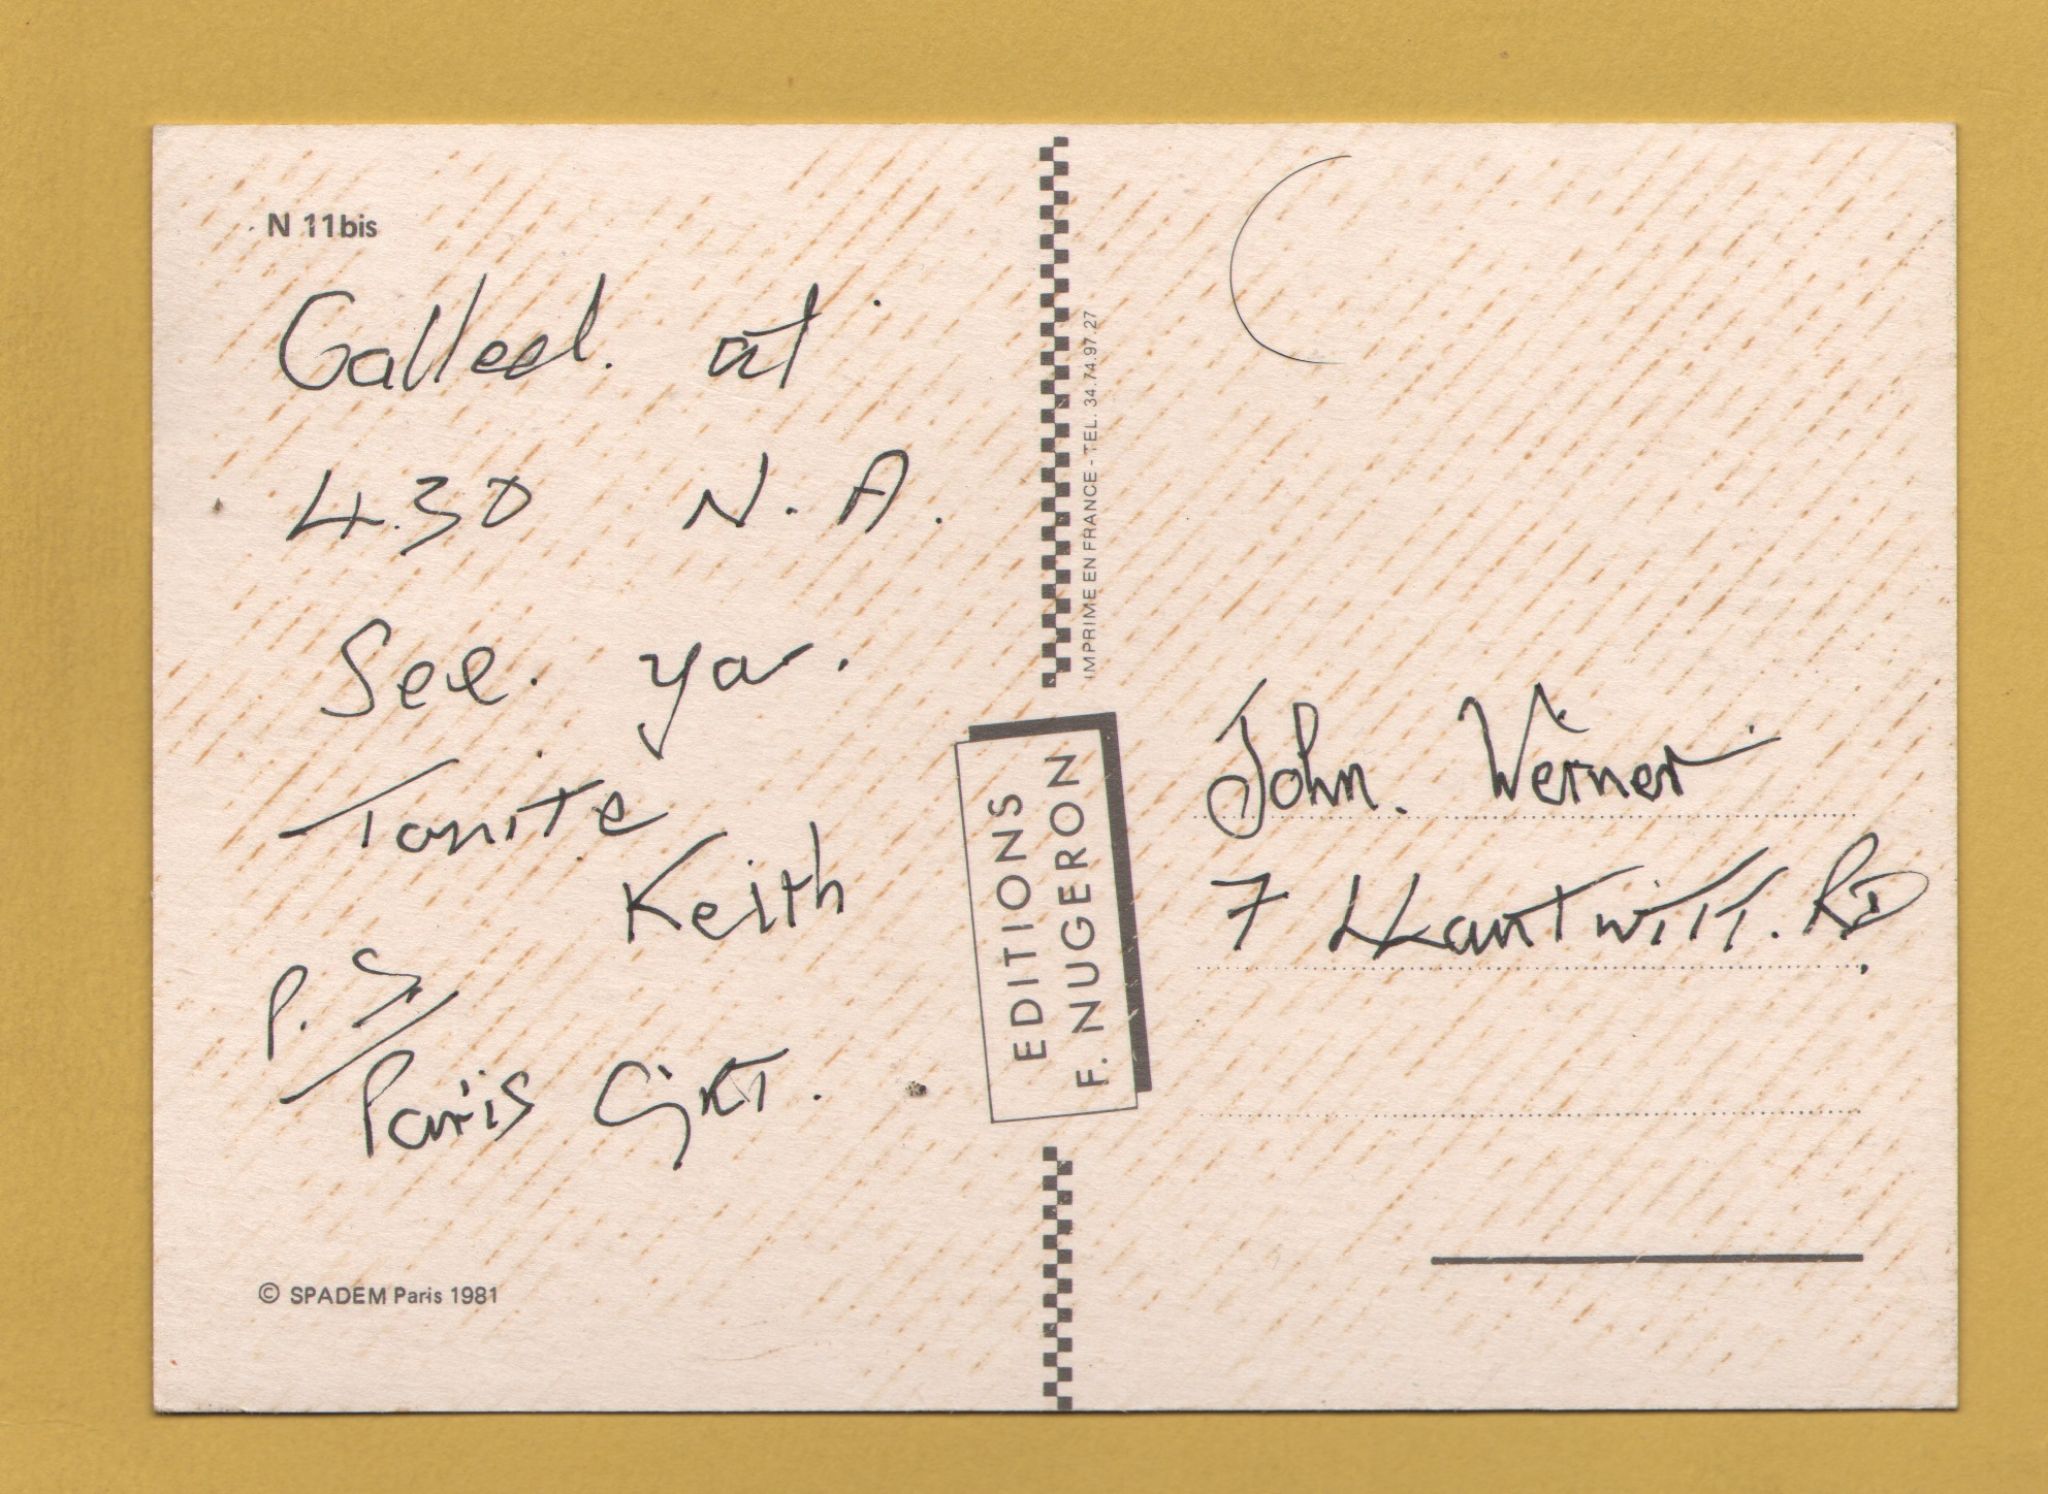 N 11bis
Called. at
4.30 N.A.
See. ya.
Tonite
Keith
P.S.
Paris
© SPADEM Paris 1981
IMPRIME EN FRANCE - TEL. 34.74.97.27
EDITIONS
F. NUGERON
John. Werner
7 RD.